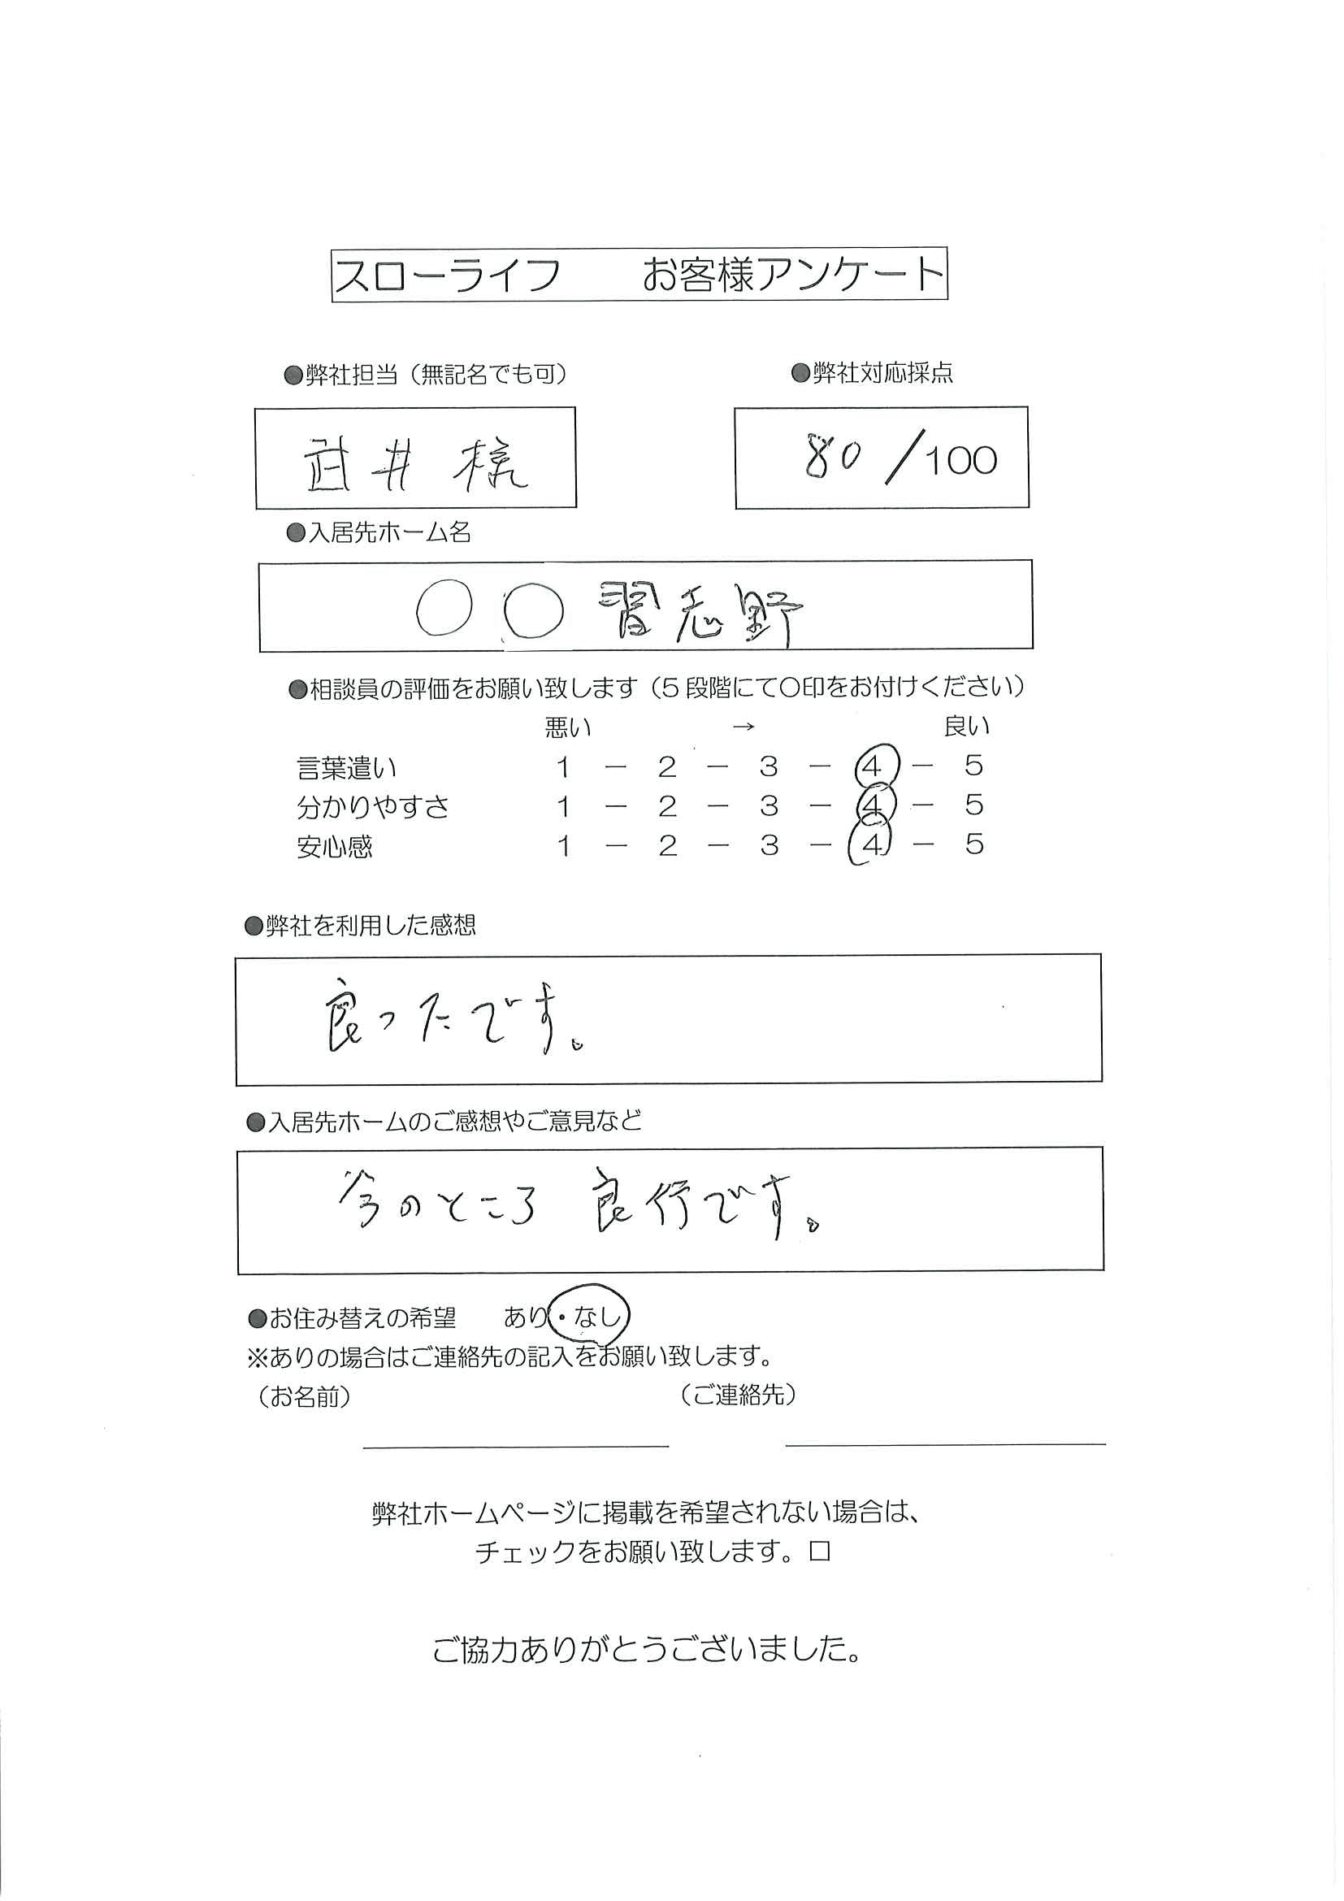 スローライフ　お客様アンケート
●弊社担当（無記名でも可）　●弊社対応採点
武井 様　80/100
●入居先ホーム名
〇〇習志野
●相談員の評価をお願い致します（5段階にて〇印をお付けください）
悪い　→　良い
言葉遣い　1 － 2 － 3 － 4 － 5
分かりやすさ　1 － 2 － 3 － 4 － 5
安心感　1 － 2 － 3 － 4 － 5
●弊社を利用した感想
良ったです。
●入居先ホームのご感想やご意見など
今のところ 良行です。
●お住み替えの希望　あり・なし
※ありの場合はご連絡先の記入をお願い致します。
（お名前）　（ご連絡先）
弊社ホームページに掲載を希望されない場合は、
チェックをお願い致します。□
ご協力ありがとうございました。